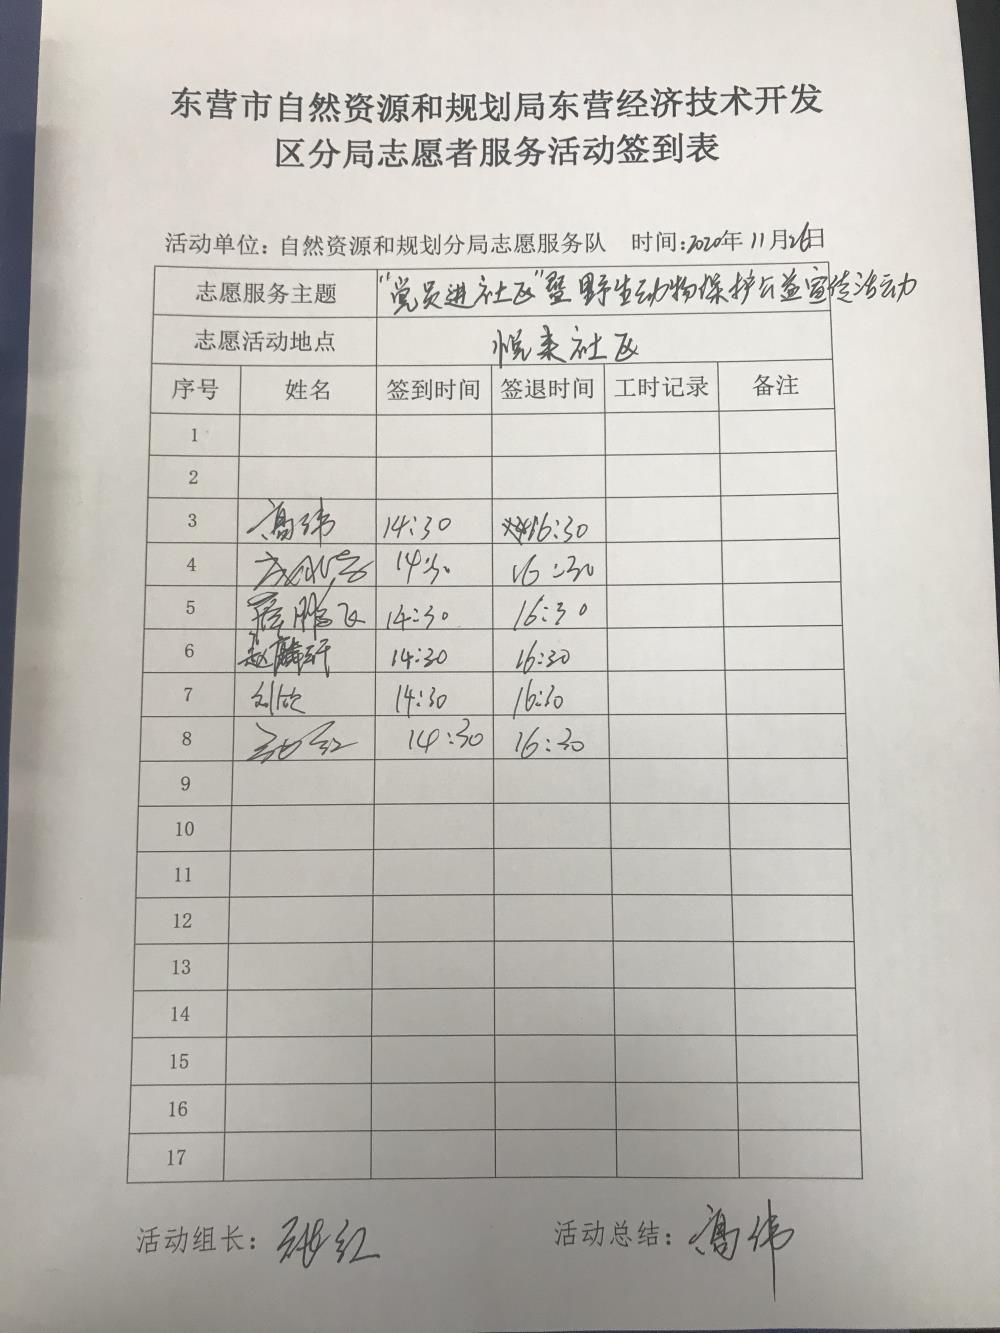 东营市自然资源和规划局东营经济技术开发
区分局志愿者服务活动签到表
活动单位：自然资源和规划分局志愿服务队 时间：2020年11月26日
志愿服务主题 “党员进社区”暨野生动物保护公益宣传活动
志愿活动地点 悦来社区
序号 姓名 签到时间 签退时间 工时记录 备注
1
2
3 高伟 14:30 16:30
4 14:30 16:30
5 鹏飞 14:30 16:30
6 赵 14:30 16:30
7 刘欣 14:30 16:30
8 红 14:30 16:30
9
10
11
12
13
14
15
16
17
活动组长： 红 活动总结：高伟